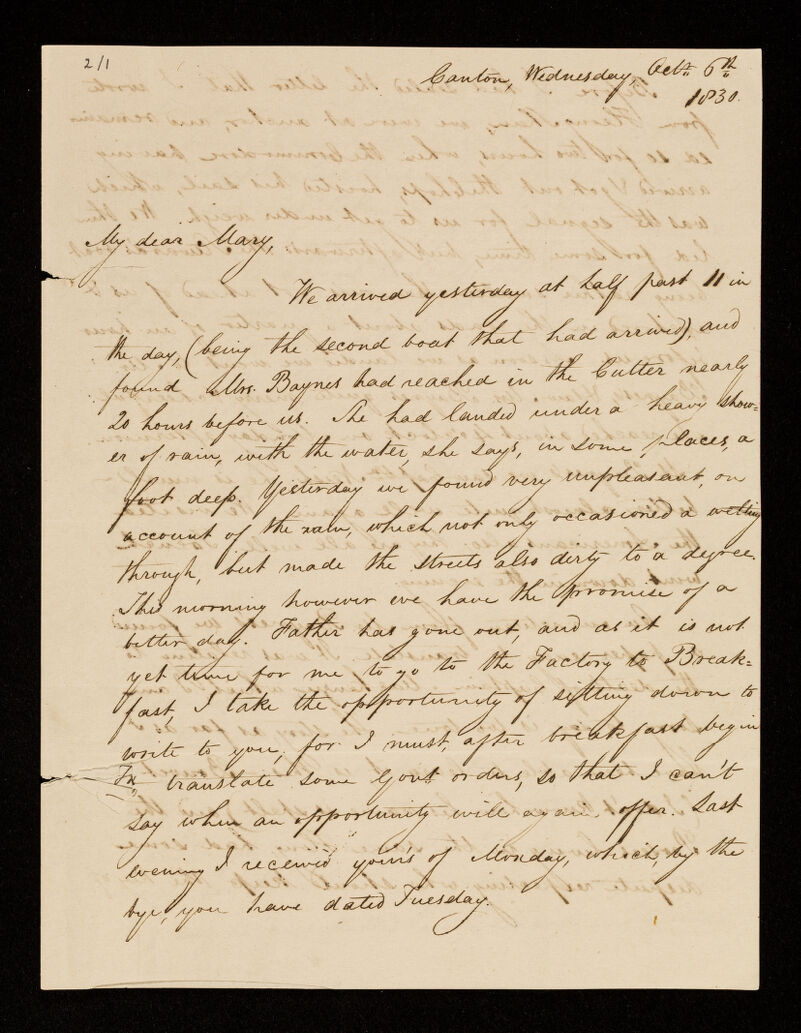 2/1
Canton, Wednesday, Octr. 6th
1830.
My dear Mary,
We arrived yesterday at half past 11 in
the day, (being the second boat that had arrived), and
found Mrs. Baynes had reached in the Cutter nearly
20 hours before us. She had landed under a heavy show=
er of rain, with the water, she says, in some places, a
foot deep. Yesterday we found very unpleasant, on
account of the rain, which not only occasioned a wetting
through, but made the streets also dirty to a degree.
This morning however we have the promise of a
better day. Father has gone out, and as it is not
yet time for me to go to the Factory to Break=
fast, I take the opportunity of sitting down to
write to you, for I must, after breakfast begin
to translate some Govt orders, so that I can't
say when an opportunity will again offer. Last
evening I received your's of Monday, which, by the
bye, you have dated Tuesday.